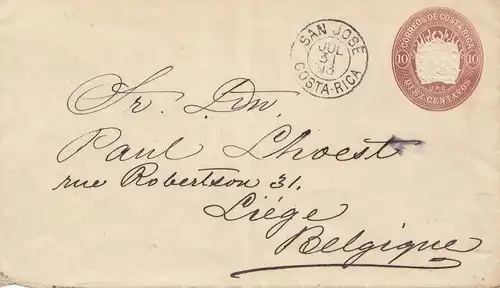 SAN JOSÉ
JUL
31
93
COSTA-RICA
CORREOS DE COSTA RICA
10 10
U.P.U.
DIEZ CENTAVOS
Sr. Dn.
Paul Lhoest
rue Robertson 31.
Liége
Belgique